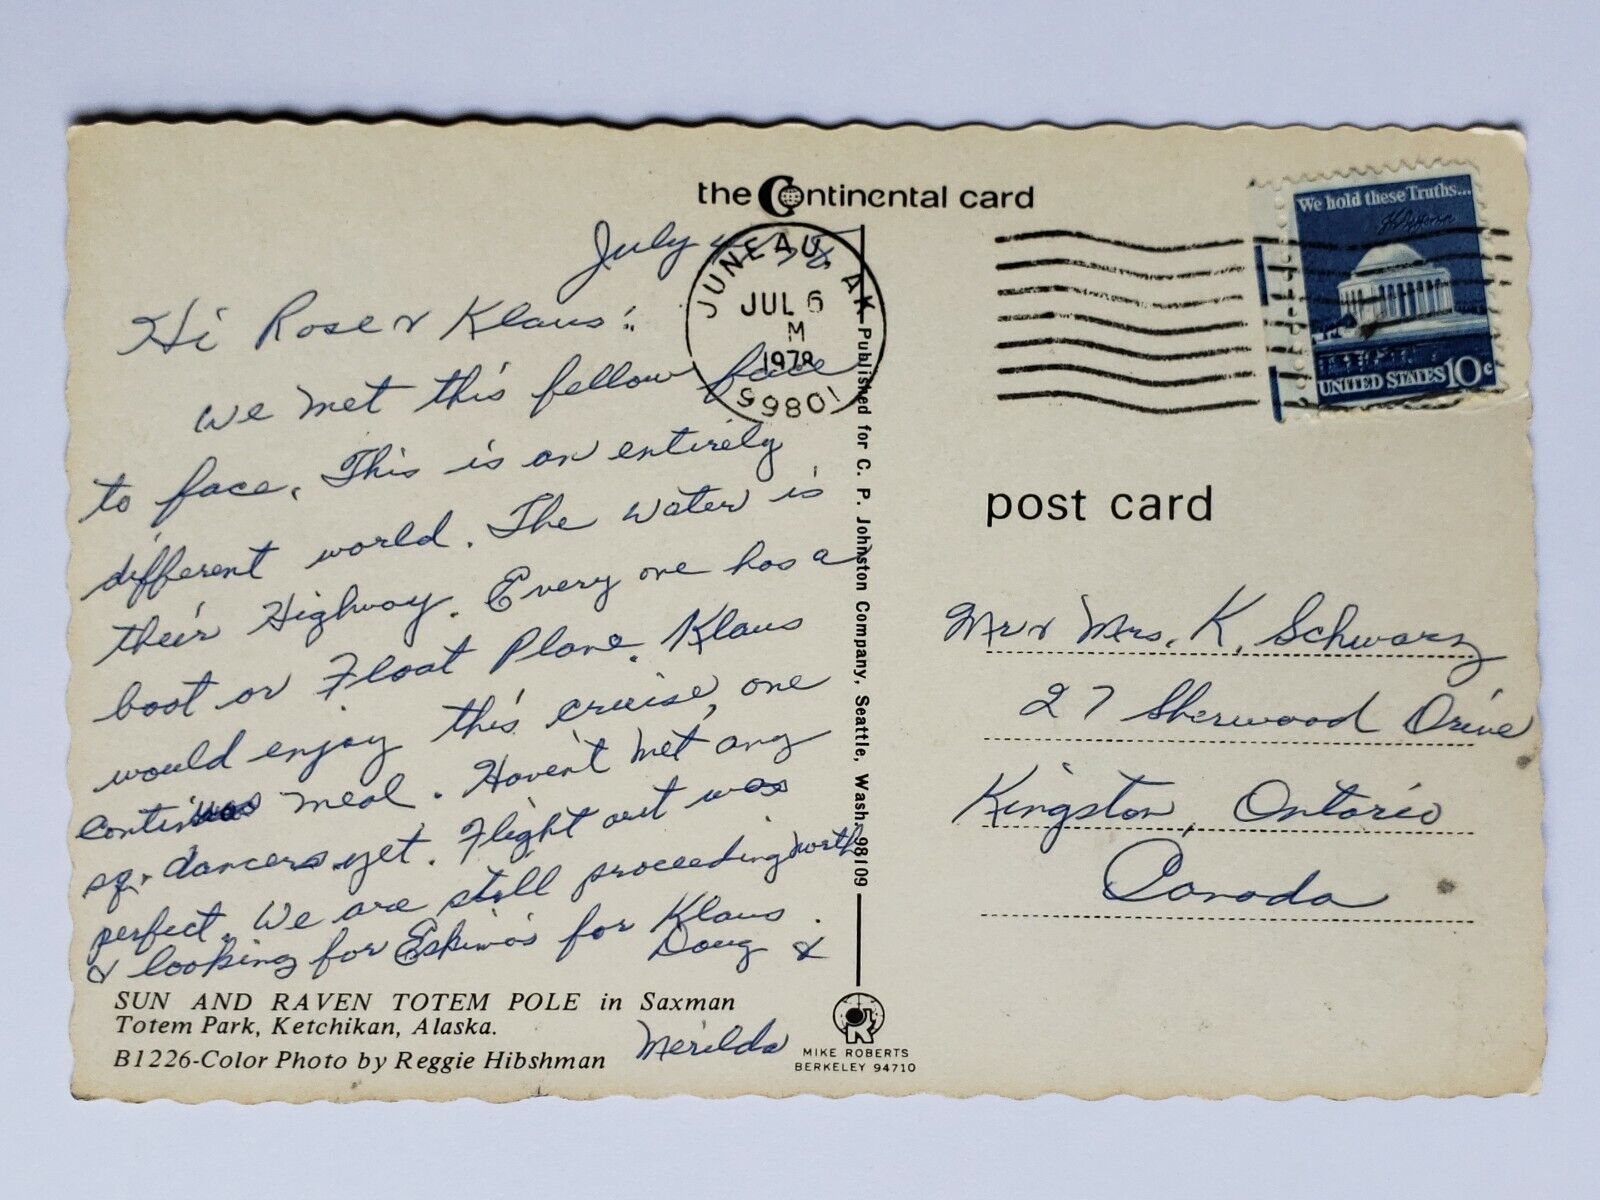 the Continental card
July 4/78
Hi Rose & Klaus:
We met this fellow face
to face. This is an entirely
different world. The water is
their Highway. Every one has a
boat or Float Plane. Klaus
would enjoy this cruise, one
continuos meal. Haven't met any
sq. dancers yet. Flight out was
perfect. We are still proceeding north
& looking for Eskimo's for Klaus.
Doug &
Merilda
SUN AND RAVEN TOTEM POLE in Saxman
Totem Park, Ketchikan, Alaska.
B1226-Color Photo by Reggie Hibshman
JUNEAU, AK
JUL 6
M
1978
99801
Published for C. P. Johnston Company, Seattle, Wash. 98109
MIKE ROBERTS
BERKELEY 94710
We hold these Truths...
UNITED STATES 10c
post card
Mr & Mrs. K. Schwarz
27 Sherwood Drive
Kingston, Ontario
Canada